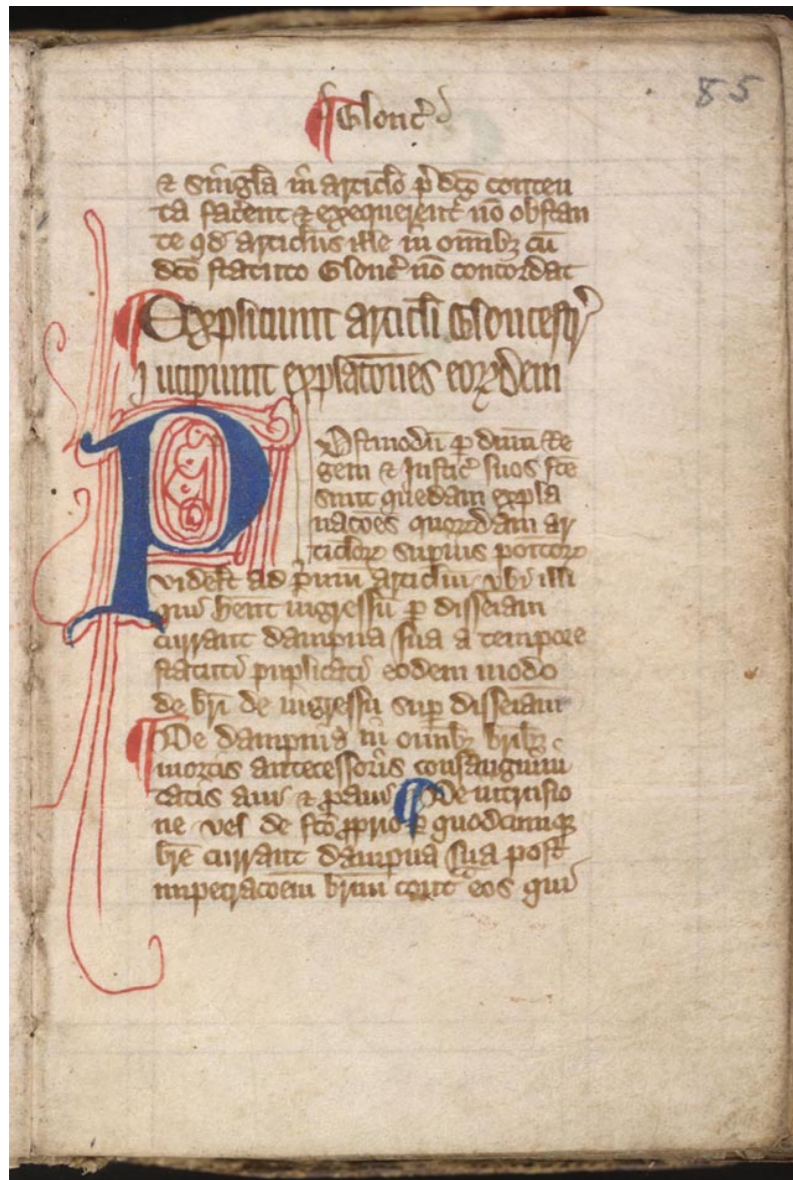 Glouc̄
85
⁊ singl̄a in articl̄o p̄dc̄o conten
ta facient ⁊ exequerent᷑ nō obstan
te qd̛ articlus ille in omībꝫ cū
dc̄o statuto Glouc̛ nō concordat
Expliciunt articl̄i Gloucestr̛
Incipiunt explac̄ones eorꝝdem
Postmodū ꝑ dnm̄ Re
gem ⁊ Justic̛ suos fc̄e
sunt quedam expla
nac̄oes quorꝝdam ar
ticlorꝝ superius poſitorꝝ
videlꝫ ad p̄mum articlum vbi illi
qui hēnt ingressū ꝑ disseiam
currant dampna sua a tempore
statuti puplicati eodem modo
de br̄i de ingressu sup̄ disseiam
De dampnis in omībꝫ br̄ibꝫ
mortis antecessoris consanguini
tatis aui ⁊ ꝓaui De intrusio
ne vel de fc̄o ꝓprio ꝑ quodcumqꝫ
br̄e currant dampna sua post
impetrac̄oem br̄ium cont̛ eos qui